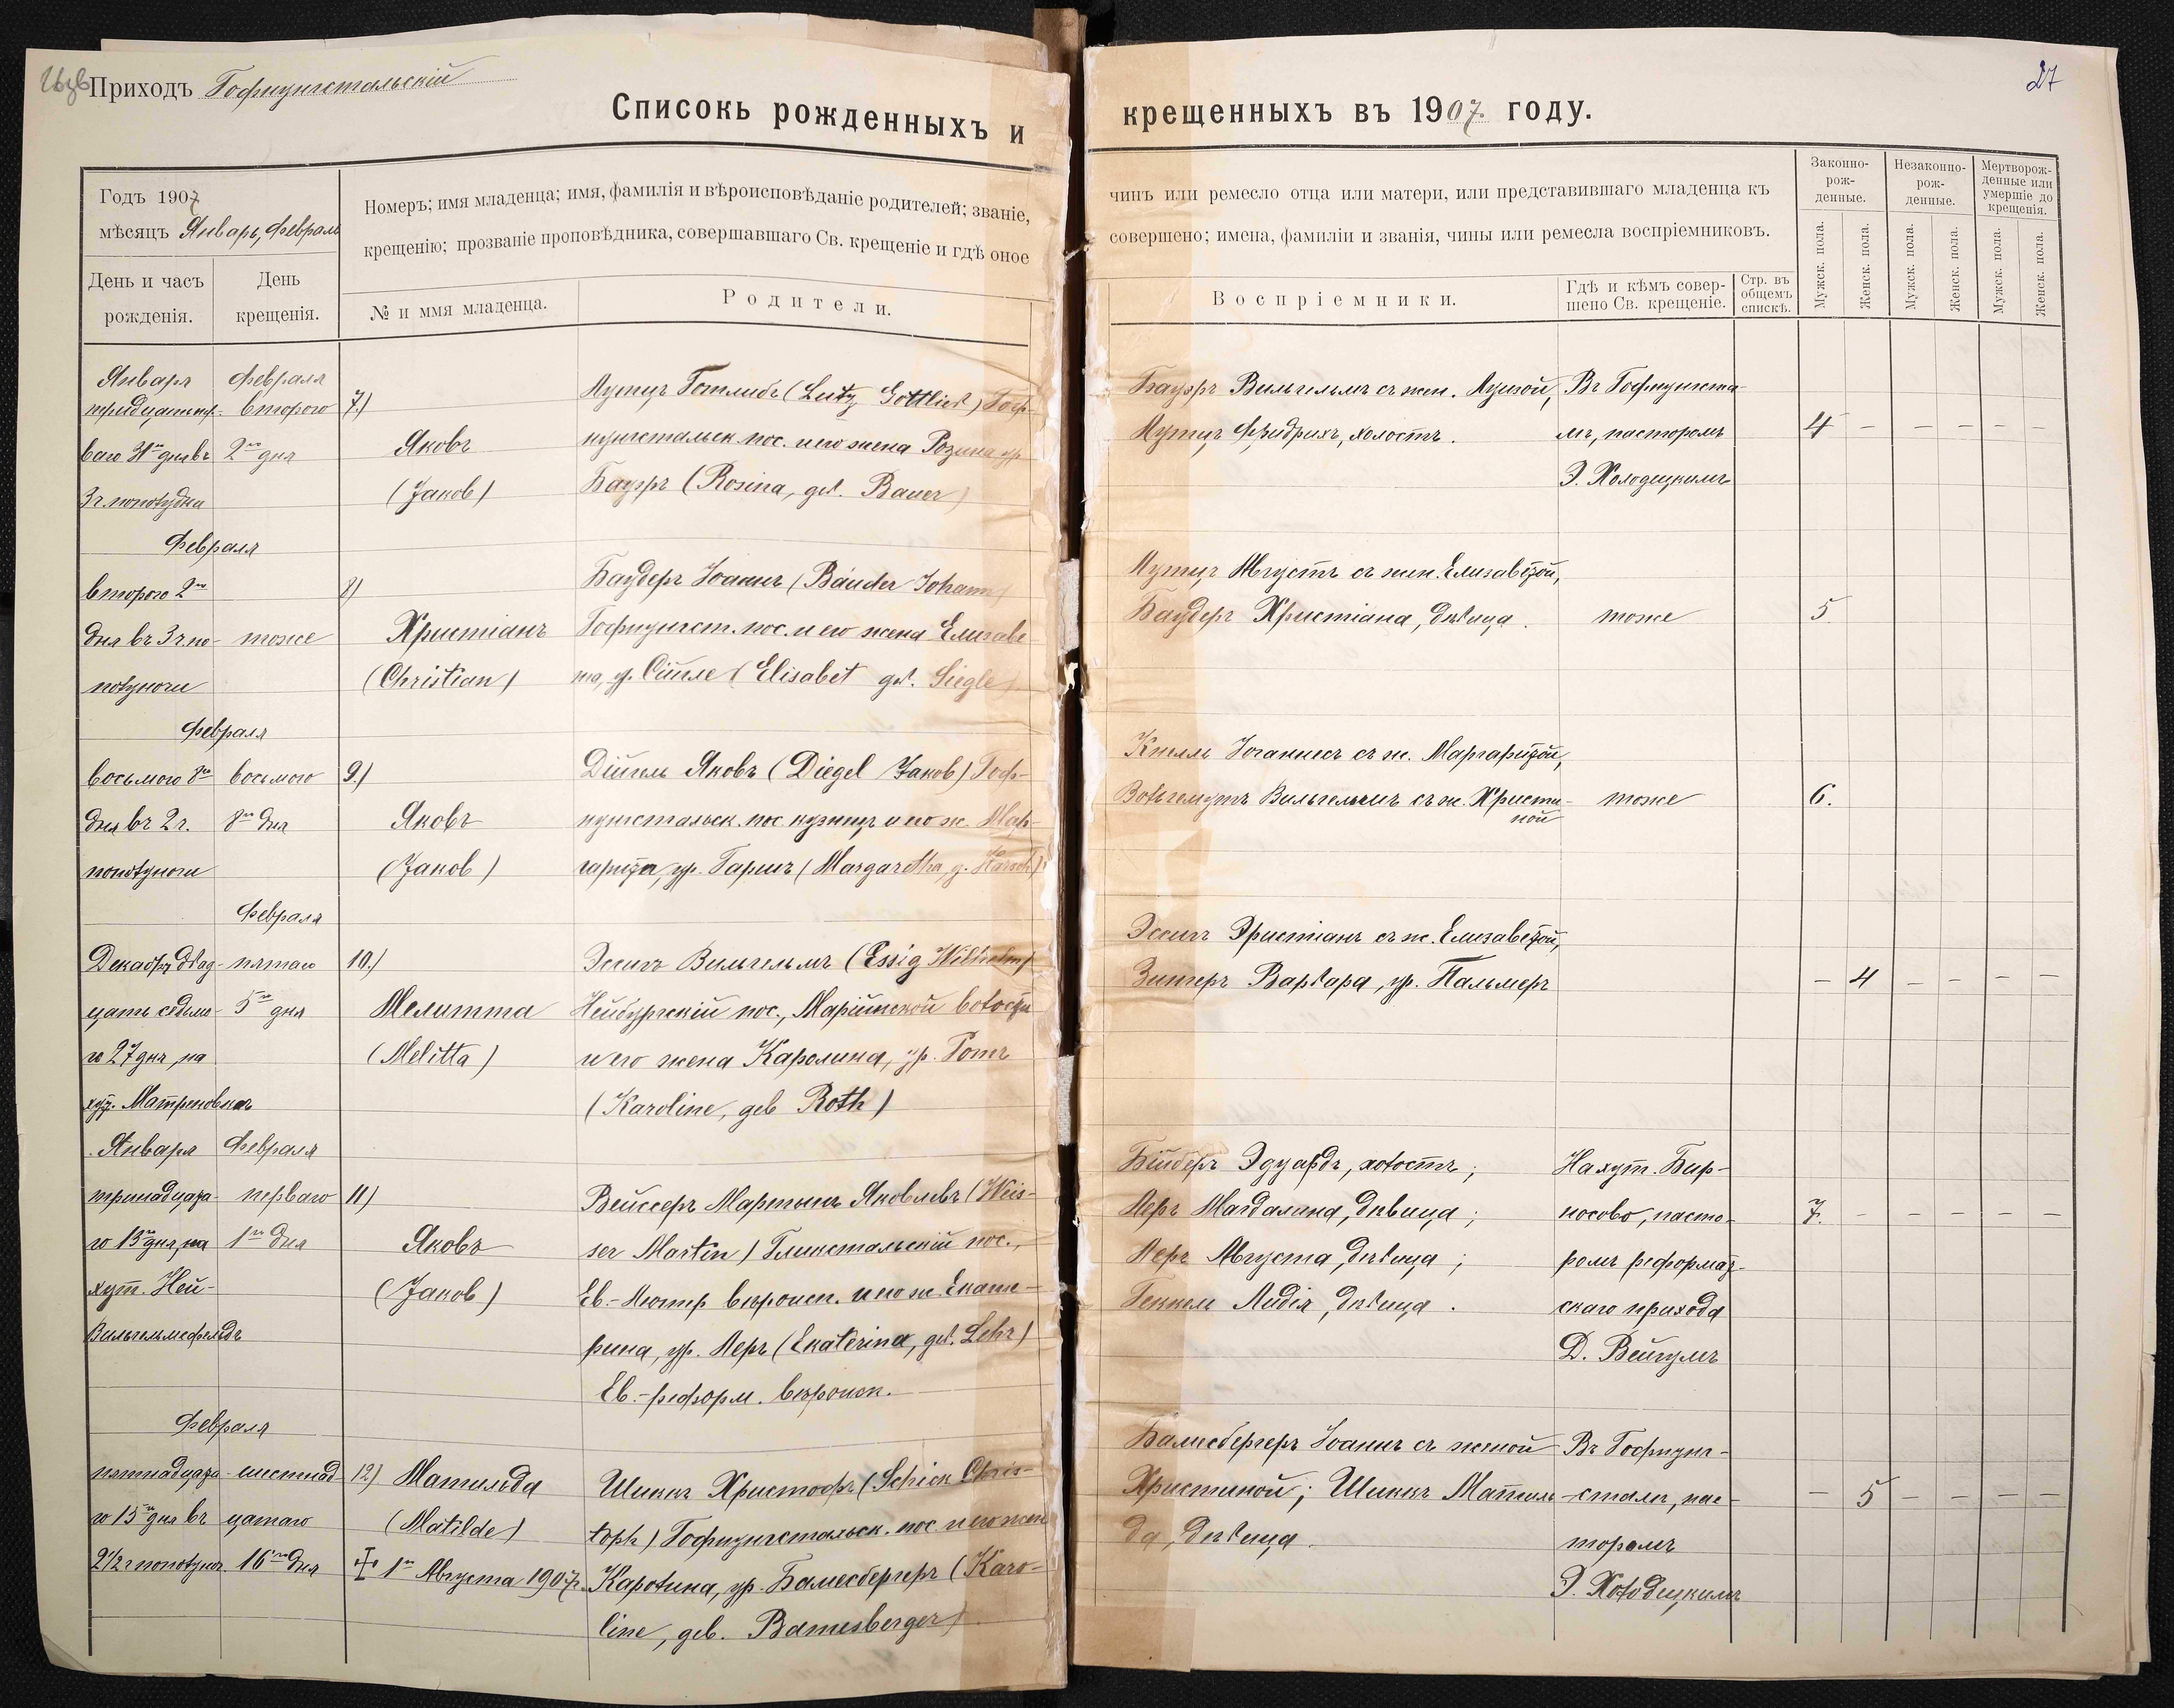 Приходъ Гофнунгстальскій
27
Списокь рожденныхъ и крещенныхъ въ 1907 году.
Годъ 1907
мѣсяцъ Январь, Февраль
Номеръ; имя младенца; имя, фамилія и вѣроисповѣданіе родителей; званіе, чинъ или ремесло отца или матери, или представившаго младенца къ
крещенію; прозваніе проповѣдника, совершавшаго Св. крещеніе и гдѣ оное совершено; имена, фамиліи и званія, чины или ремесла воспріемниковъ.
День и часъ рожденія.
День крещенія.
№ и ммя младенца.
Родители.
Воспріемники.
Гдѣ и кѣмъ совершено Св. крещеніе.
Стр. въ общемъ спискѣ.
Законно-рож-денные.
Незаконно-рож-денные.
Мертворож-денные или умершіе до крещенія.
Мужск. пола.
Женск. пола.
Мужск. пола.
Женск. пола.
Мужск. пола.
Женск. пола.
Января
тридцать пер-
ваго 31го дня въ
3 ч. пополудни
Февраля
второго
2го дня
7.)
Яковъ
(Jakob)
Лутцъ Готлибъ (Lutz Gottlieb) Гоф-
нунгстальск. пос. и его жена Розина ур.
Бауэръ (Rosina, geb. Bauer)
Бауэръ Вильгельмъ съ жен. Луизой,
Лутцъ Фридрихъ, холостъ.
Въ Гофнунгста-
лѣ, пасторомъ
Э. Холодецкимъ
4 – – – – –
Февраля
второго 2го
дня въ 3 ч. по-
полуночи
тоже
8)
Христіанъ
(Christian)
Баудеръ Іоаннъ (Bauder Johann)
Гофнунгст. пос. и его жена Елизаве-
та, ур. Сигле (Elisabet geb. Siegle)
Лутцъ Августъ съ жен. Елизаветой,
Баудеръ Христіана, дѣвица.
тоже
5
Февраля
восьмого 8го
дня въ 2 ч.
пополуночи
восьмого
8го дня
9.)
Яковъ
(Jakob)
Дигель Яковъ (Diegel Jakob) Гоф-
нунгстальск. пос. кузнецъ и его ж. Мар-
гарита, ур. Гаршъ (Margaretha, g. Harsch)
Іоганнесъ съ ж. Маргаритой,
Вольгемутъ Вильгельмъ съ ж. Христи-
ной
тоже
6.
Февраля
Декабря двад-
цать седьмо-
го 27 дня, на
хут. Матреновкѣ
пятаго
5го дня
10.)
Мелитта
(Melitta)
Эссигъ Вильгельмъ (Essig Wilhelm)
Нейбургскій пос., Маріинской волости
и его жена Каролина, ур. Ротъ
(Karoline, geb Roth)
Эссигъ Христіанъ съ ж. Елизаветой,
Зингеръ Варвара, ур. Пальмеръ
– 4 – – – –
Января
тринадцата-
го 13го дня, на
хут. Ней-
Вильгельмсфельдъ
Февраля
перваго
1го дня
11)
Яковъ
(Jakob)
Вейссеръ Мартынъ Яковлевъ (Weis-
ser Martin) Глюкстальскій пос.,
Ев.-Лютер вѣроисп. и его ж. Екате-
рина, ур. Леръ (Ekaterina, geb. Lehr)
Ев.-реформ. вѣроисп.
Эдуардъ, холостъ;
Леръ Магдалина, дѣвица;
Леръ Августа, дѣвица;
Геккель Лидія, дѣвица.
На хут. Бир-
носово, пасто-
ромъ реформат-
скаго прихода
Д. Вейгумъ
7. – – – – –
Февраля
пятнадцата-
го 15го дня въ
2 1/2 ч пополуноч.
шестнад-
цатаго
16го дня
12) Матильда
(Matilde)
1го Августа 1907 г.
Шиккъ Христофъ (Schick Chris-
toph) Гофнунгстальск. пос и его жен
Каролина, ур. Бамесбергеръ (Karo-
line, geb. Bamesberger)
Бамесбергеръ Іоаннъ съ женой
Христиной; Шиккъ Матиль-
да, дѣвица.
Въ Гофнунг-
сталѣ, пас-
торомъ
Э. Холодецкимъ
– 5 – – – –